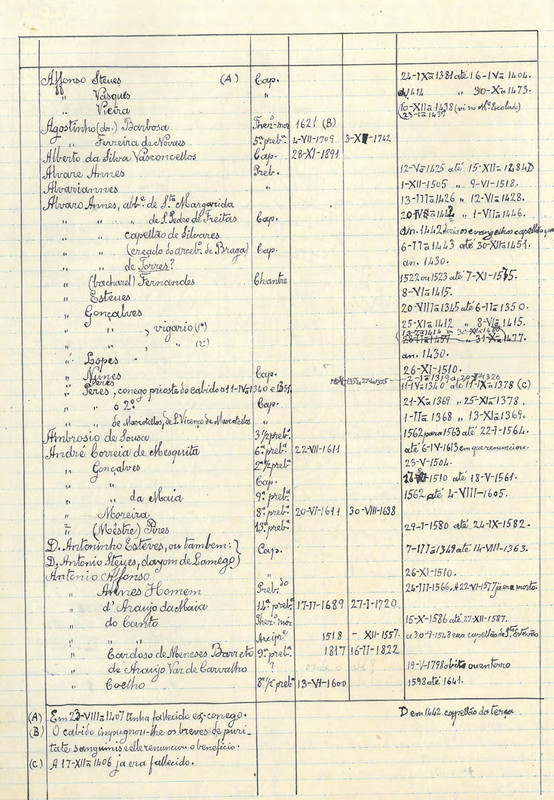 Affonso Steves (A) Cap. 24-IXª 1381 até 16-IVª 1404.
" Vasques " 1414 " 30-Xª-1473.
" Vieira 10-XIIª 1438
Agostinho (dr.) Barbosa 1621 (B)
" Ferreira de Novaes 5ª prebª 4-VII-1709 1742
Alberto da Silva Vasconcellos Cap. 28-XI-1891
Alvare Annes Preb. 12-Vª 1425 até 15-XIIª
Alvariannes " 1-XII-1505 " 9-VI-1518.
Alvaro Annes, abbº de Stª Margarida 13-IIIª 1426 " 12-VIª 1428.
" " " de S. Pedro de Freitas Cap. " 1-VIIª 1446.
" capellão de Silvares an. 1442
" (creado do arcebº de Braga) Cap. 6-IIª 1443 até 30-XIª 1451.
" de Torres? an. 1430.
" (bacharel) Fernandes Chantre 1522 ou 1523 até
" Esteves 8-VIª 1415.
" Gonçalves 20-VIIIª 1345 até 6-IIª 1350.
" " , vigario (1º) 25-XIª 1412 " 8-VIª 1415.
" " , " (2º) " 31-Xª 1477.
" Lopes an. 1430.
" Nunes Cap. 26-XI-1510.
" Peres, conego prioste do cabido 11-IVª 1340 até 11-IXª 1378 (C)
" " o 2º Cap. 21-Xª 1369 " 25-XIª 1378.
" " de Marcotellos, de S. Vicenço de Mascotellos " 1-IIª 1368 " 13-XIª 1369.
Ambrosio de Sousa 3ª ½ prebª 1562 para 1563 até 22-I-1564.
André Correia de Mesquita 6ª prebª 22-VII-1611 até 6-IV-1613 em que renunciou.
" Gonçalves 2ª ½ prebª 23-V-1504.
" " Cap. 1510 até 18-V-1561.
" " da Maia 9ª prebª 1562 até 4-VIII-1605.
" Moreira 8ª prebª 20-VI-1611 30-VIII-1638
" (Mestre) Pires 13ª prebª 29-I-1580 até 24-IX-1582.
D. Antoninho Esteves, ou tambem: }
D. Antonio Steyes, dayom de Lamego } Cap. 7-IIIª 1349 até 14-VIII-1363.
Antonio Affonso 26-XI-1510.
" Annes Homem Prebdo 24-III-1566. A 22-VI-1577 ja era morto.
" d'Araujo da Maia 14ª prebª 17-II-1689 27-I-1720.
" do Canto 15-X-1586 até 27-XII-1587.
" " " Arcipre 1518 - XII-1557.
" Cardoso de Meneses Barreto 9ª prebª 1817 16-II-1822
" de Araujo Vaz de Carvalho ? 19-V-1798 obito ou enterro
" Coelho 8ª ½ prebª 13-VI-1600 1598 até 1641.
(A) Em 23-VIIIª 1407 tinha fallecido ex-conego.
D em 1442. capellão da terça
(B) O cabido impugnou-lhe os breves de puri-
tate sanguinis e elle renunciou o beneficio.
(C) A 17-XIIª 1406 ja era fallecido.